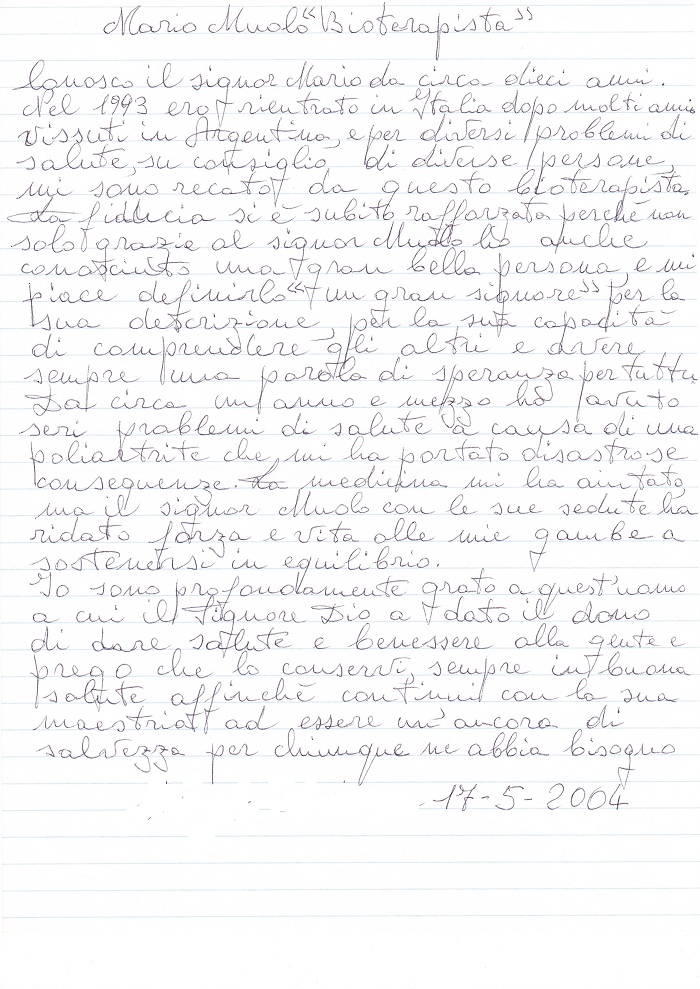 Mario Muolo "Bioterapista"
Conosco il signor Mario da circa dieci anni.
Nel 1993 ero rientrato in Italia dopo molti anni
vissuti in Argentina, e per diversi problemi di
salute, su consiglio di diverse persone,
mi sono recato da questo bioterapista.
La fiducia si è subito rafforzata perchè non
solo grazie al signor Muolo hò anche
conosciuto una gran bella persona, e mi
piace definirlo "un gran signore" per la
sua descrizione, per la sua capacità
di comprendere gli altri e avere
sempre una parola di speranza per tutti.
Da circa un anno e mezzo hò avuto
seri problemi di salute a causa di una
poliartrite che mi ha portato disastrose
conseguenze. La medicina mi ha aiutato,
ma il signor Muolo con le sue sedute ha
ridato forza e vita alle mie gambe a
sostenersi in equilibrio.
Io sono profondamente grato a quest'uomo
a cui il Signore Dio a dato il dono
di dare salute e benessere alla gente e
prego che lo conservi, sempre in buona
salute affinchè continui con la sua
maestria ad essere un'ancora di
salvezza per chiunque ne abbia bisogno
17-5-2004